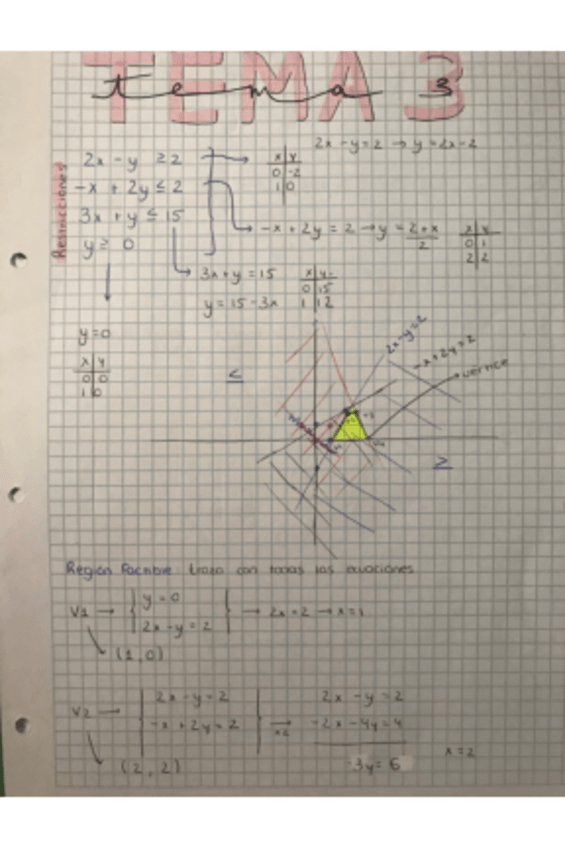 TEMA 3
tema 3
Restricciones
2x - y ≥ 2
-x + 2y ≤ 2
3x + y ≤ 15
y ≥ 0
2x - y = 2 → y = 2x - 2
x y
0 -2
1 0
-x + 2y = 2 → y = 2+x / 2
x y
0 1
2 2
3x + y = 15
y = 15 - 3x
x y
0 15
1 12
y = 0
x y
0 0
1 0
≤
2x - y = 2
-x + 2y = 2
vertice
≥
Región factible: trozo con todas las ecuaciones
V1 → y = 0
2x - y = 2 → 2x = 2 → x = 1
(1, 0)
V2 → 2x - y = 2
-x + 2y = 2 → x2
2x - y = 2
-2x - 4y = 4
3y = 6
x = 2
(2, 2)